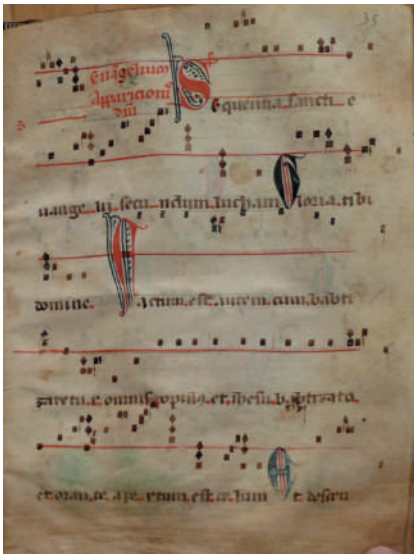 35
Evãgelium
Apparicionis
dñi
Sequentia sancti e
uange lij secu ndum luch am Gloria tibi
domine. Factum est autem cum bapti
zaretu r omnis populus et ihesu baptizato
et oran te ape rtum est ce lum Et descen